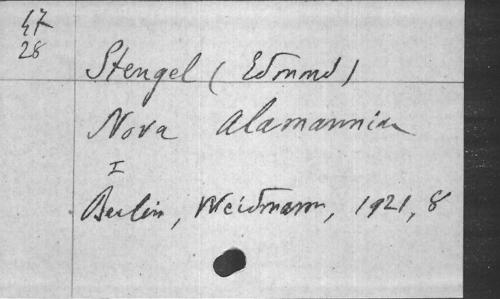 47
28
Stengel (Edmund)
Nova Alamanniae
I
Berlin, Weidmann, 1921, 8